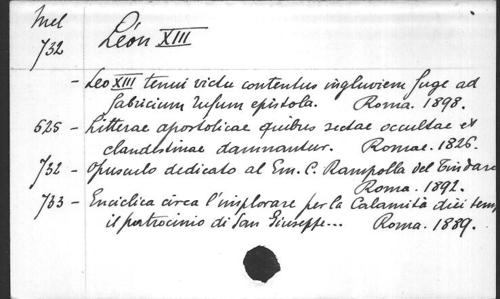 Mel
732 León XIII
- Leo XIII tenui victu contentus ingluviem fuge ad
Fabricium Rufum epistola. Roma. 1898.
625 - Litterae apostolicae quibus sectae occultae et
clandestinae damnantur. Romae. 1826.
732 - Opusculo dedicato al Em. C. Rampolla del Tindaro
Roma. 1892.
733 - Enciclica circa l'implorare per la Calamità dei tem
il patrocinio di San Giuseppe... Roma. 1889.